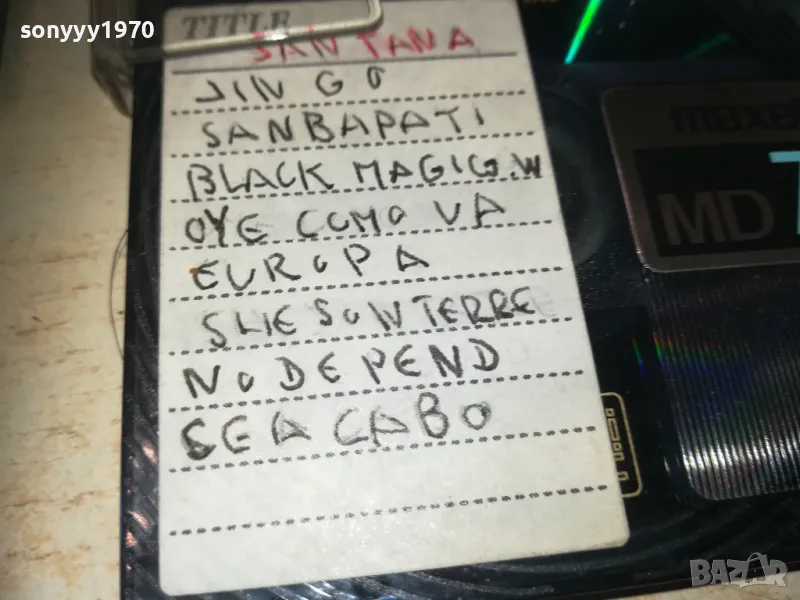 sonyyy1970
TITLE
SANTANA
JINGO
SANBAPATI
BLACK MAGIC.W
OYE COMO VA
EUROPA
SLIE SOW TERRE
NO DEPEND
SEACABO
maxell
MD
BAZAR.bg